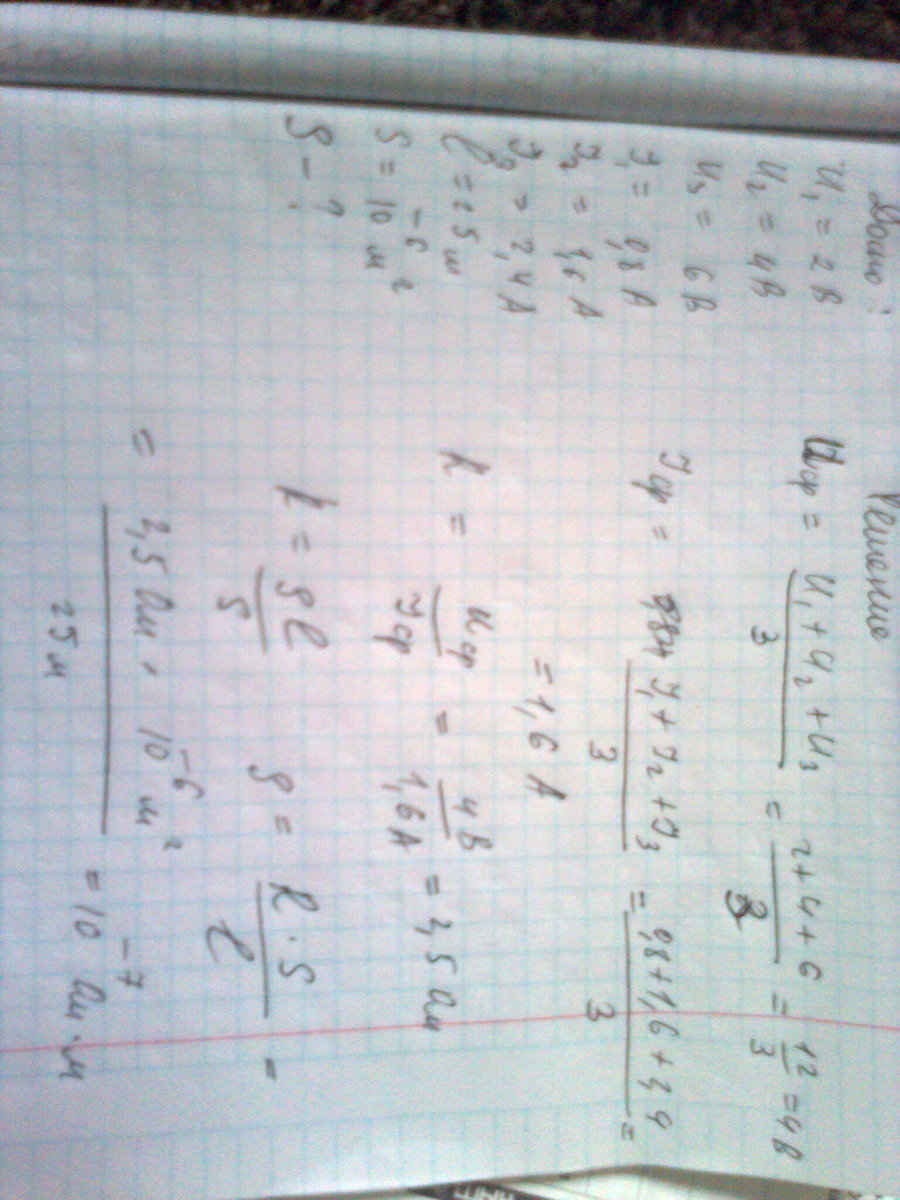 Дано:
U₁ = 2 В
U₂ = 4 В
U₃ = 6 В
J₁ = 0,8 А
J₂ = 1,6 А
J₃ = 2,4 А
l = 25 м
S = 10⁻⁶ м²
ρ - ?
Решение
Uср = (U₁ + U₂ + U₃)/3 = (2 + 4 + 6)/3 = 12/3 = 4 В
Jср = (J₁ + J₂ + J₃)/3 = (0,8 + 1,6 + 2,4)/3 =
= 1,6 А
R = Uср/Jср = 4 В/1,6 А = 2,5 Ом
R = ρl/S ρ = R·S/l =
= 2,5 Ом · 10⁻⁶ м²/25 м = 10⁻⁷ Ом·м